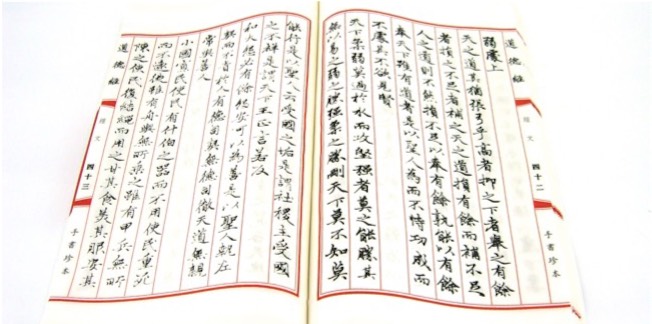 道德經
四十二
手書珍本
弱處上
天之道其猶張弓乎高者抑之下者舉之有餘
者損之不足者補之天之道損有餘而補不足
人之道則不然損不足以奉有餘孰能以有餘
奉天下唯有道者是以聖人為而不恃功成而
不處其不欲見賢
天下柔弱莫過於水而攻堅强者莫之能勝其
無以易之弱之勝强柔之勝剛天下莫不知莫
能行是以聖人云受國之垢是謂社稷主受國
之不祥是謂天下王正言若反
和大怨必有餘怨安可以為善是以聖人執左
契而不責於人有德司契無德司徹天道無親
常與善人
小國寡民使民有什伯之器而不用使民重死
而不遠徙雖有舟輿無所乘之雖有甲兵無所
陳之使民復結繩而用之甘其食美其服安其
道德經
四十三
手書珍本